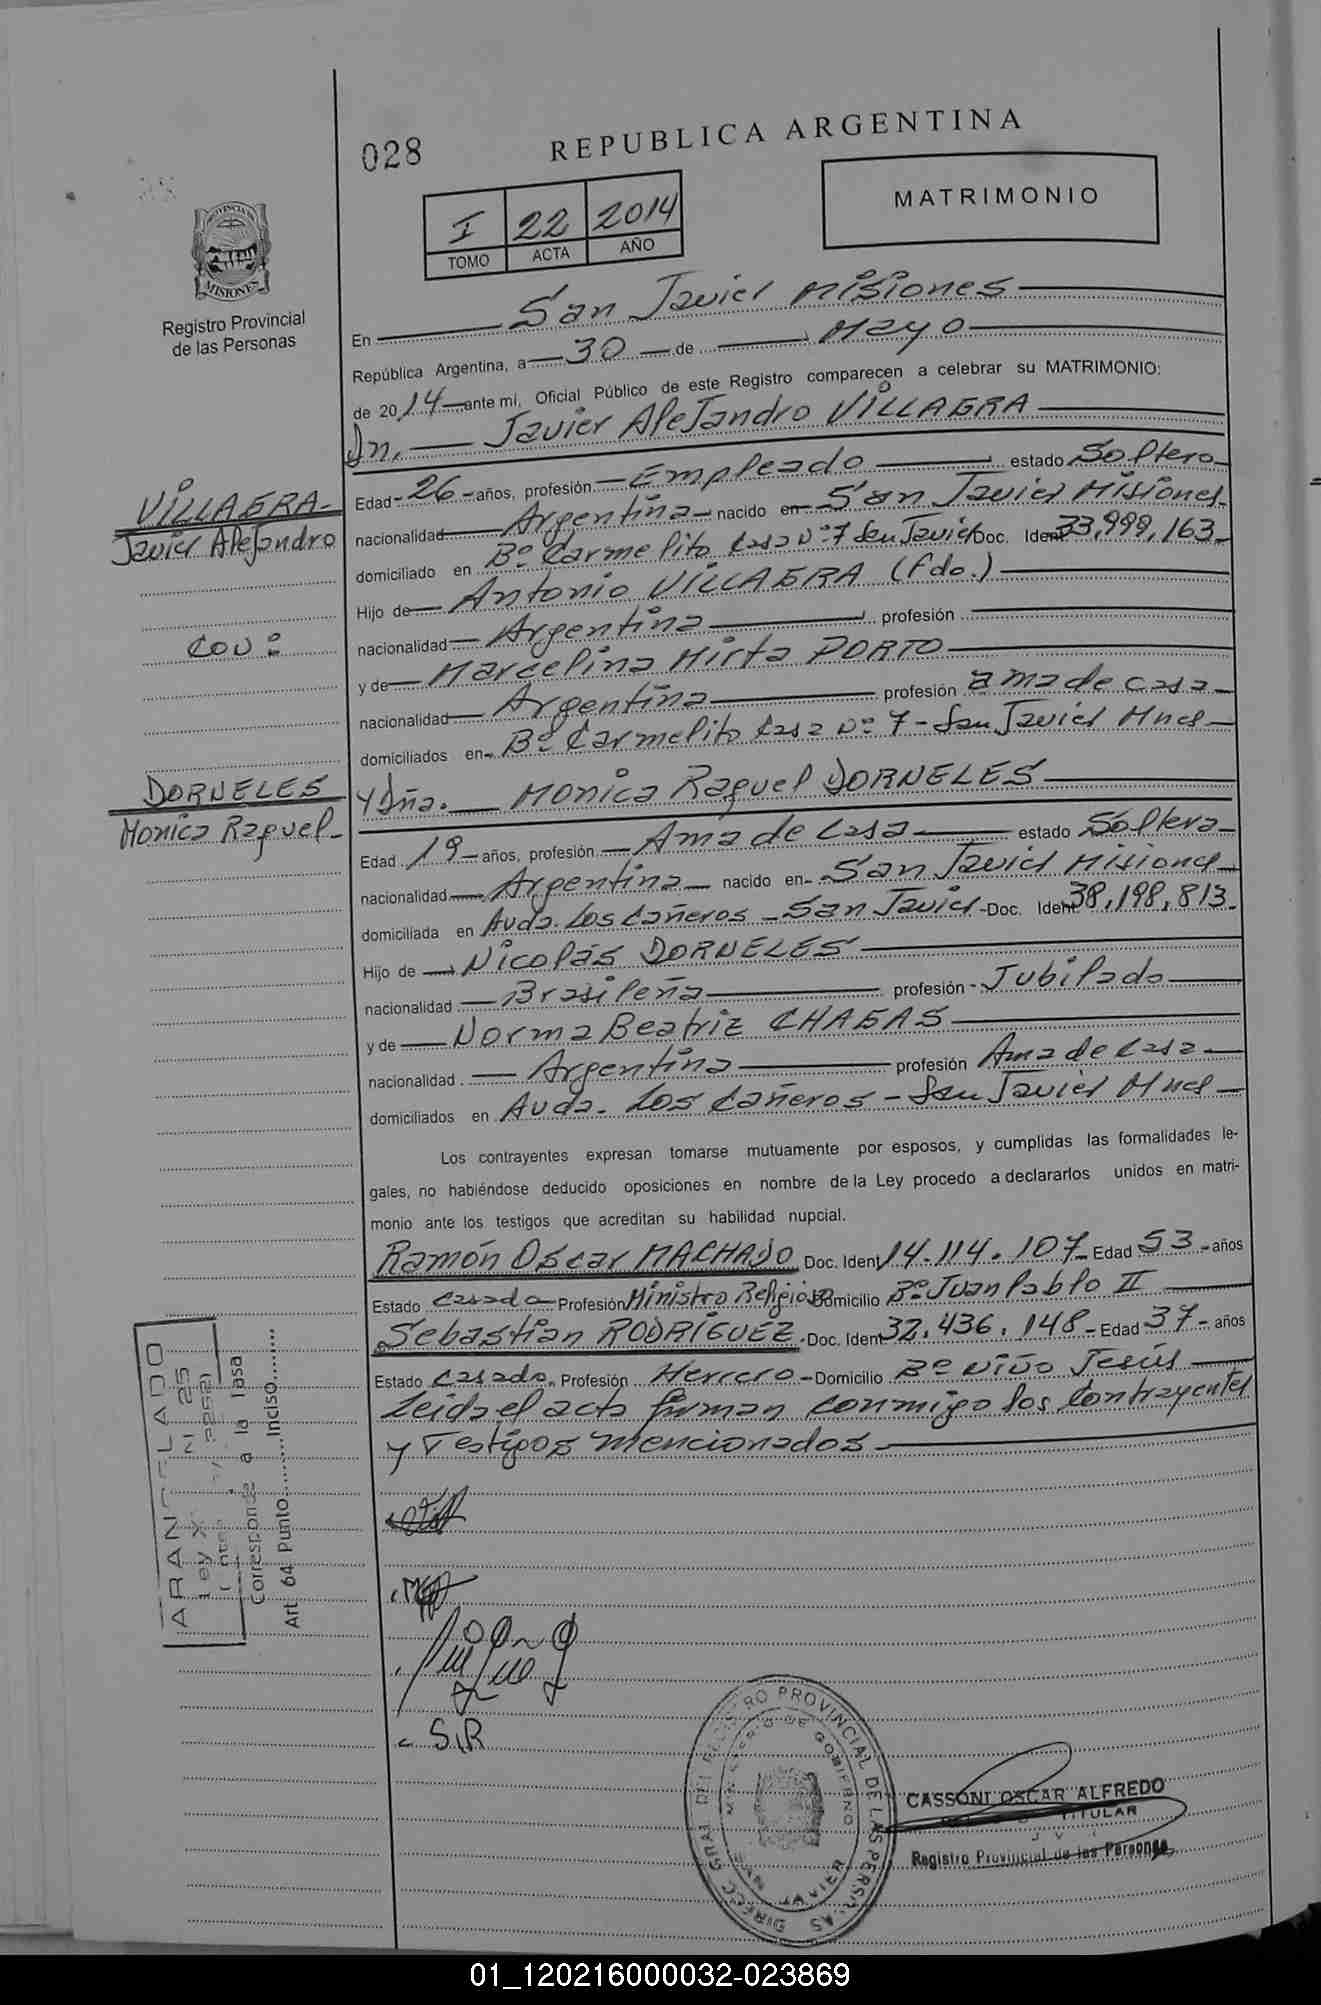 028
REPUBLICA ARGENTINA
I 22 2014
TOMO ACTA AÑO
MATRIMONIO
PROVINCIA DE
MISIONES
Registro Provincial
de las Personas
En San Javier Misiones
República Argentina, a 30 de Mayo
de 2014 ante mi, Oficial Público de este Registro comparecen a celebrar su MATRIMONIO:
Dn. Javier Alejandro VILLAGRA
Edad 26 años, profesión Empleado estado Soltero
VILLAGRA
nacionalidad Argentina nacido en San Javier Misiones
Javier Alejandro
domiciliado en Bº Carmelito Casa Nº 7 San Javier Doc. Ident 33,999,163
Hijo de Antonio VILLAGRA (fdo.)
nacionalidad Argentina profesión
con:
y de Marcelina Mirta PORTO
nacionalidad Argentina profesión ama de casa
domiciliados en Bº Carmelito Casa Nº 7 - San Javier Mnes
DORNELES
Y Dña. Monica Raquel DORNELES
Monica Raquel
Edad 19 años, profesión Ama de Casa estado Soltera
nacionalidad Argentina nacido en San Javier Misiones
domiciliada en Avda. Los Cañeros - San Javier - Doc. Ident. 38,198,813
Hijo de Nicolás DORNELES
nacionalidad Brasileña profesión - Jubilado
y de Norma Beatriz CHAGAS
nacionalidad Argentina profesión Ama de Casa
domiciliados en Avda. Los Cañeros - San Javier Mnes
Los contrayentes expresan tomarse mutuamente por esposos, y cumplidas las formalidades le-
gales, no habiéndose deducido oposiciones en nombre de la Ley procedo a declararlos unidos en matri-
monio ante los testigos que acreditan su habilidad nupcial.
Ramón Oscar MACHADO Doc. Ident 14.114.107 Edad 53 - años
Estado Casado Profesión Ministro Religioso Domicilio Bº Juan Pablo II
Sebastian RODRÍGUEZ Doc. Ident 32,436,148 - Edad 37 - años
Estado Casado Profesión Herrero - Domicilio Bº Niño Jesús
Leida el acta firman conmigo los Contrayentes
y Testigos mencionados
Corresponde a la Tasa
Art 64 Punto Inciso
S.R
REGISTRO PROVINCIAL DE LAS PERSONAS
MINISTERIO DE GOBIERNO
CASSONI OSCAR ALFREDO
TITULAR
Registro Provincial de las Personas
01_120216000032-023869